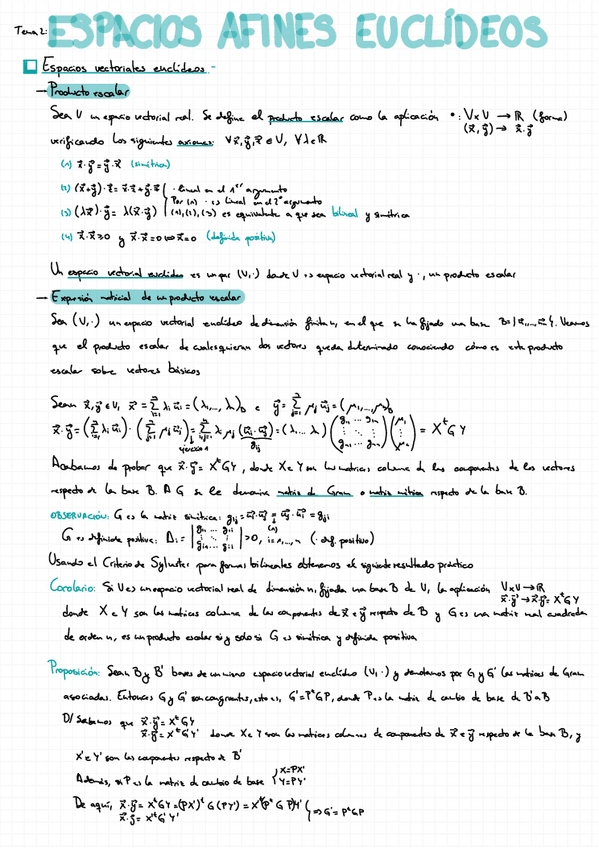 Tema 2: ESPACIOS AFINES EUCLÍDEOS
Espacios vectoriales euclídeos -
→ Producto escalar
Sea V un espacio vectorial real. Se define el producto escalar como la aplicación • : V x V → ℝ (forma)
(x⃗, y⃗) → x⃗·y⃗
verificando los siguientes axiomas: ∀x⃗, y⃗, z⃗ ∈ V, ∀λ∈ℝ
(1) x⃗·y⃗ = y⃗·x⃗ (simétrica)
(2) (x⃗+y⃗)·z⃗ = x⃗·z⃗ + y⃗·z⃗ · lineal en el 1er argumento
Por (1) · es lineal en el 2º argumento
(3) (λx⃗)·y⃗ = λ(x⃗·y⃗) (1), (2), (3) es equivalente a que sea bilineal y simétrica
(4) x⃗·x⃗ ≥ 0 y x⃗·x⃗ = 0 ⇔ x⃗ = 0 (definida positiva)
Un espacio vectorial euclídeo es un par (V, ·) donde V es espacio vectorial real y ·, un producto escalar
→ Expresión matricial de un producto escalar
Sea (V, ·) un espacio vectorial euclídeo de dimensión finita n, en el que se ha fijado una base B={u⃗1,...,u⃗n}. Veamos
que el producto escalar de cualesquieran dos vectores queda determinado conociendo cómo es este producto
escalar sobre vectores básicos
Sean x⃗, y⃗ ∈ V, x⃗ = Σ λi u⃗i = (λ1,..., λn)B e y⃗ = Σ μj u⃗j = (μ1,...,μn)B
x⃗·y⃗ = (Σ λi u⃗i)·(Σ μj u⃗j) = Σ λi μj (u⃗i·u⃗j) = (λ1 ... λn) (g11 ... g1n ⋮ ⋱ ⋮ gn1 ... gnn) (μ1 ⋮ μn) = XᵗGY
gij
Acabamos de probar que x⃗·y⃗ = XᵗGY, donde X e Y son las matrices columna de las componentes de los vectores
respecto de la base B. A G se le denomina matriz de Gram o matriz métrica respecto de la base B.
OBSERVACIÓN: G es la matriz simétrica: gij = u⃗i·u⃗j = u⃗j·u⃗i = gji
(1)
G es definida positiva: Δi = |g11 ... g1i ⋮ ⋱ ⋮ gi1 ... gii| > 0, i=1,...,n (· def. positiva)
Usando el Criterio de Sylvester para formas bilineales obtenemos el siguiente resultado práctico
Corolario: Si V es un espacio vectorial real de dimensión n, fijada una base B de V, la aplicación V x V → ℝ
x⃗·y⃗ → x⃗·y⃗ = XᵗGY
donde X e Y son las matrices columna de las componentes de x⃗ e y⃗ respecto de B y G es una matriz real cuadrada
de orden n, es un producto escalar si y solo si G es simétrica y definida positiva
Proposición: Sean B y B' bases de un mismo espacio vectorial euclídeo (V, ·) y denotamos por G y G' las matrices de Gram
asociadas. Entonces G y G' son congruentes, esto es, G' = PᵗGP, donde P es la matriz de cambio de base de B' a B
D/ Sabemos que x⃗·y⃗ = XᵗGY
x⃗·y⃗ = X'ᵗG'Y' donde X e Y son las matrices columnas de componentes de x⃗ e y⃗ respecto de la base B, y
X' e Y' son las componentes respecto de B'
Además, si P es la matriz de cambio de base { X=PX'
Y=PY'
De aquí, x⃗·y⃗ = XᵗGY = (PX')ᵗ G (PY') = X'ᵗ(PᵗGP)Y' } ⇒ G' = PᵗGP
x⃗·y⃗ = X'ᵗG'Y'